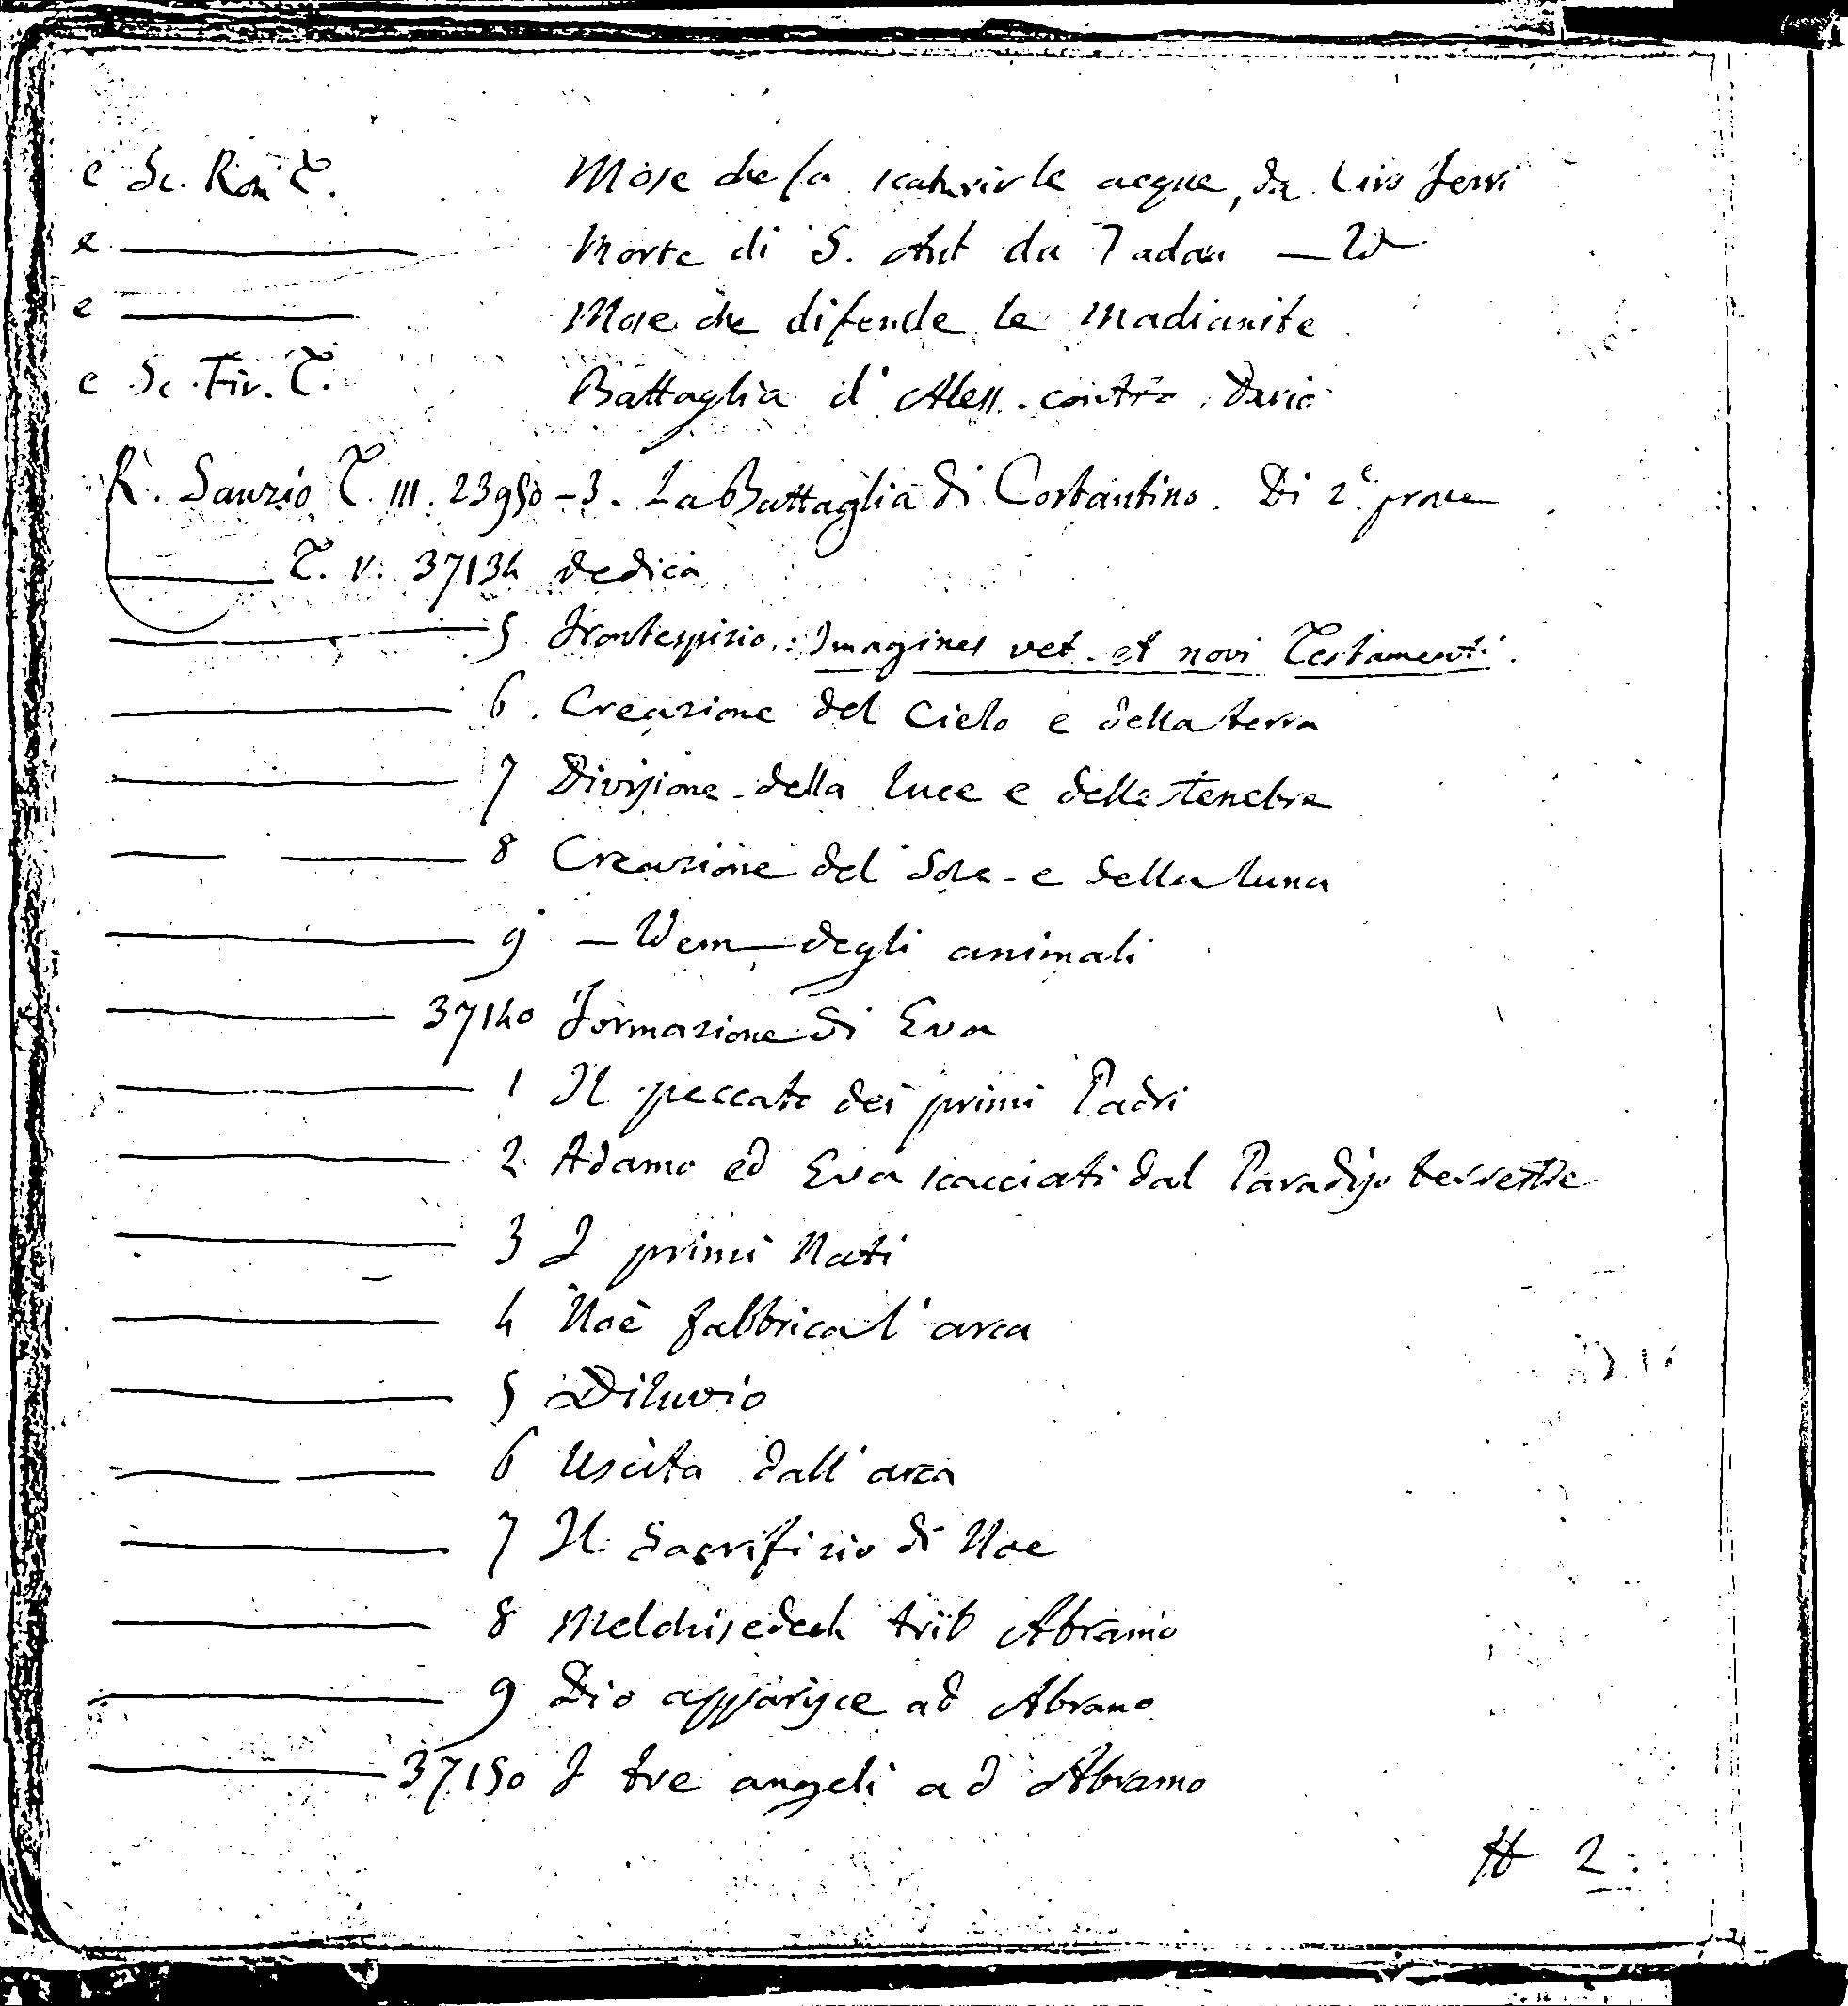 e Sc. Rom T. Mose che fa scaturir le acque, da Ciro Ferri
e ——— Morte di S. Ant da Padova — Id
e ——— Mose che difende le Madianite
e Sc. Fir. T. Battaglia d'Aless. contro Dario
R. Sanzio T. III. 23950-3. La Battaglia di Costantino. Di 2e prove
——— T. V. 37134 dedica
——— 5 Frontespizio: Imagines vet. et novi Testamenti.
——— 6. Creazione del Cielo e della terra
——— 7 Divisione della luce e delle tenebre
——— 8 Creazione del Sole e della luna
——— 9 — Idem — degli animali
——— 37140 Formazione di Eva
——— 1 Il peccato dei primi Padri
——— 2 Adamo ed Eva scacciati dal Paradiso terrestre
——— 3 I primi Nati
——— 4 Noè fabbrica l'arca
——— 5 Diluvio
——— 6 Uscita dall'arca
——— 7 Il Sacrifizio di Noe
——— 8 Melchisedech trib Abramo
——— 9 Dio apparisce ad Abramo
——— 37150 I tre angeli ad Abramo
2